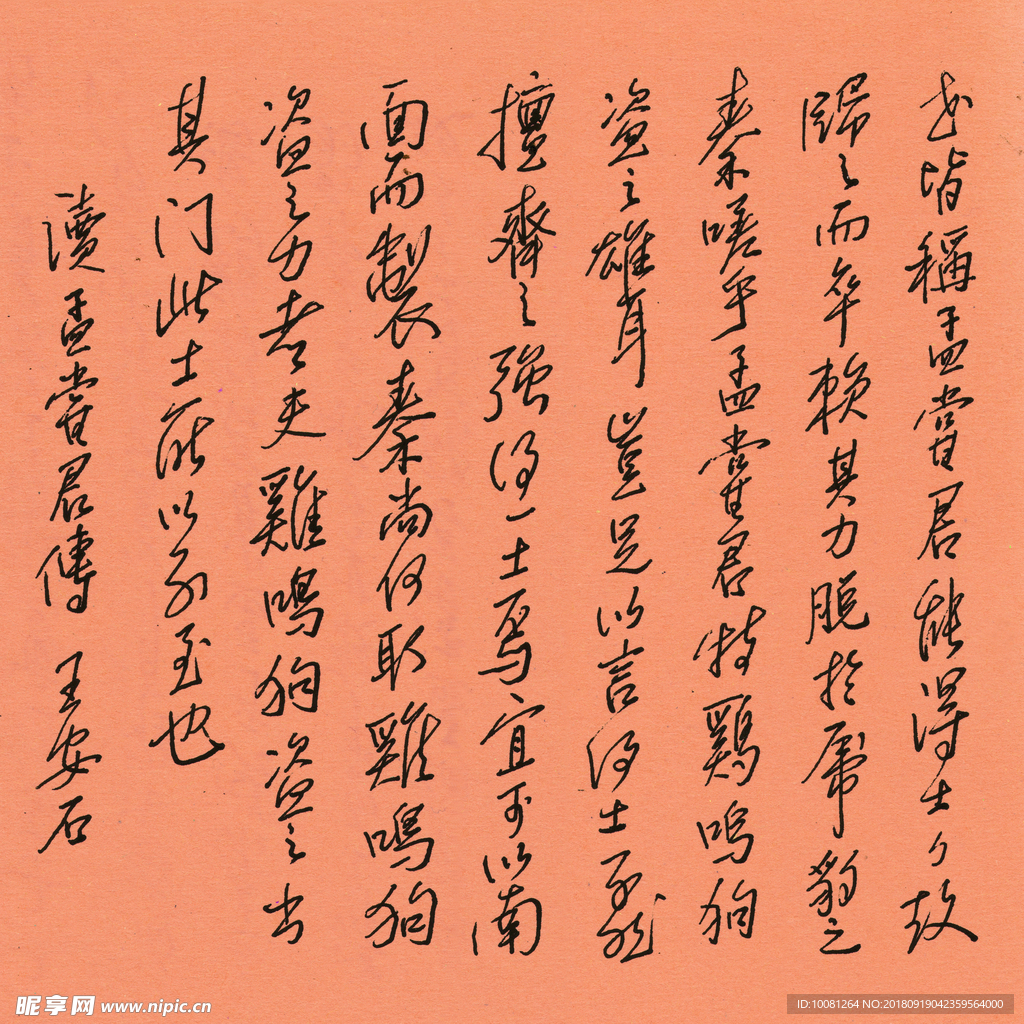 世皆稱孟嘗君能得士々故
歸之而卒賴其力脫於虎豹之
秦嗟乎孟嘗君特鷄鳴狗
盜之雄耳豈足以言得士不然
擅齊之強得一士焉宜可以南
面而製秦尚何取雞鳴狗
盜之力者夫雞鳴狗盜之出
其门此士所以不至也
讀孟嘗君傳 王安石
昵享网 www.nipic.cn
ID:10081264 NO:20180919042359564000